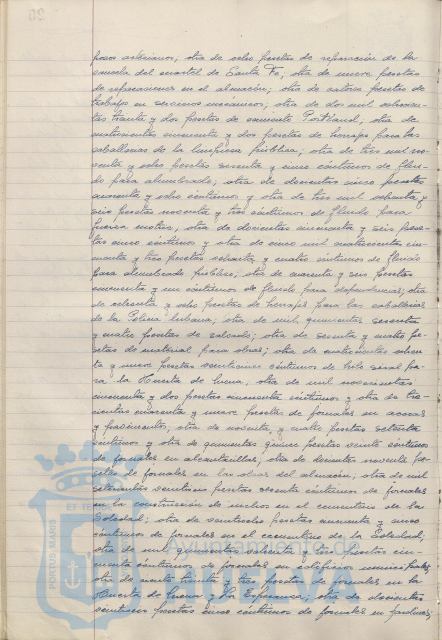 pozos artesianos; otra de ocho pesetas de reparación de la
escuela del cuartel de Santa Fe; otra de nueve pesetas
de reparaciones en el almacén; otra de catorce pesetas de
trabajos en servicios mecánicos; otra de dos mil
treinta y dos pesetas de cemento Portland; otra de
cuatrocientas cincuenta y dos pesetas de herraje para las
caballerías de la limpieza pública; otra de tres mil
y ocho pesetas sesenta y cinco céntimos de flui-
do para alumbrado; otra de doscientas cinco pesetas
y ocho céntimos y otra de tres mil ochenta y
seis pesetas noventa y tres céntimos de fluido para
fuerza motriz; otra de doscientas cincuenta y seis pese-
tas once céntimos y otra de cinco mil cuatrocientas cin-
cuenta y tres pesetas ochenta y cuatro céntimos de fluido
para alumbrado público; otra de cuarenta y seis pesetas
cincuenta y un céntimos de fluido para dependencias; otra
de ochenta y ocho pesetas de herrajes para las caballerías
de la Policía Urbana; otra de mil quinientas sesenta
y cuatro pesetas de calzado; otra de sesenta y cuatro pe-
setas de material para obras; otra de cuatrocientas
y nueve pesetas céntimos de pa-
ra la Huerta de; otra de mil novecientas
cincuenta y dos pesetas cincuenta céntimos y otra de tres-
cientas cuarenta y nueve pesetas de jornales en aceras
y; otra de noventa y cuatro pesetas setenta
céntimos y otra de quinientas quince pesetas veinte céntimos
de jornales en alcantarillas; otra de doscientas noventa pe-
setas de jornales en las obras del almacén; otra de mil
setecientas veintiséis pesetas sesenta céntimos de jornales
en la construcción de nichos en el cementerio de la
Soledad; otra de veintiocho pesetas cincuenta y cinco
céntimos de jornales en el cementerio de la Soledad;
otra de mil quinientas y dos pesetas cin-
cuenta céntimos de jornales en edificios municipales;
otra de ciento treinta y tres pesetas de jornales en la
Huerta de y La Esperanza; otra de doscientas
veintiséis pesetas once céntimos de jornales en jardines;
PORTUS MARIS
ET TE
Ayuntamiento de